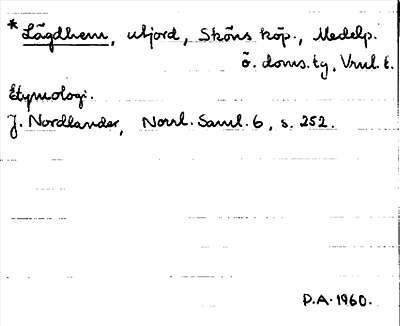 * Lägdhem, utjord, Sköns köp., Medelp.
ö. doms. tg, Vnrl. l.
Etymologi.
J. Nordlander, Norrl. Saml. 6, s. 252.
P.A. 1960.